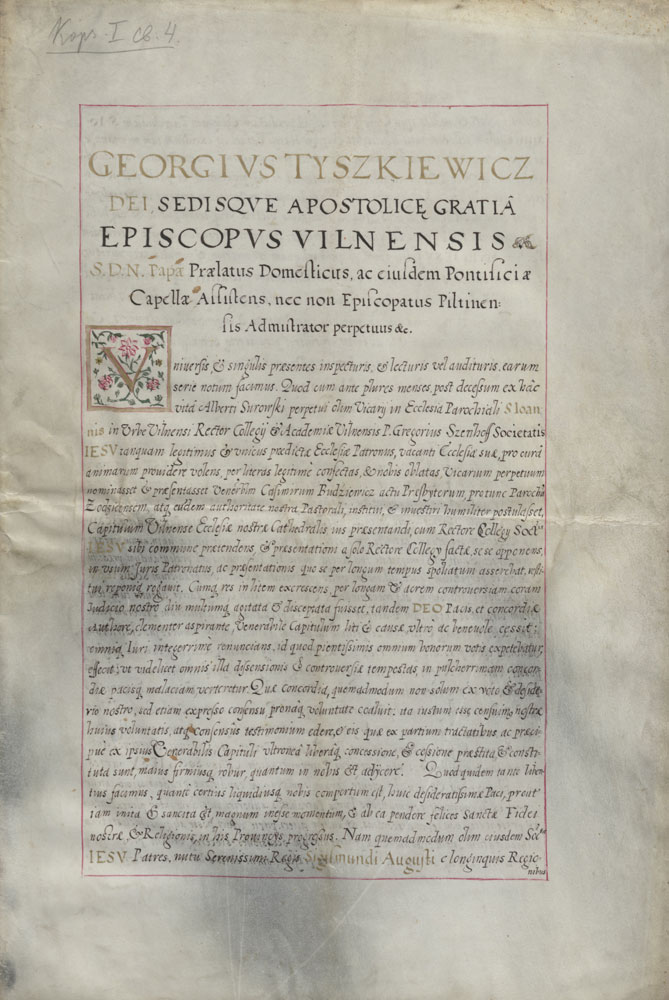 Kops. I cb. 4.
GEORGIVS TYSZKIEWICZ
DEI, SEDISQVE APOSTOLICĘ GRATIÂ
EPISCOPVS VILNENSIS
S. D. N. Papæ Prælatus Domesticus, ac eiusdem Pontificiæ
Capellæ Assistens, nec non Episcopatus Piltinen:
sis Admistrator perpetuus &c.
Vniversis, & singulis præsentes inspecturis, & lecturis vel audituris, earum
serie notum facimus. Quod cum ante plures menses, post decessum ex hâc
vitâ Alberti Surowski perpetui olim Vicarij in Ecclesia Parochiali S Ioan
nis in Vrbe Vilnensi Rector Collegij & Academiæ Vilnensis P. Gregorius Szenhoff Societatis
IESV tanquam legitimus & vnicus prædictæ Ecclesiæ Patronus, vacanti Ecclesiæ suæ, pro curâ
animarum providere volens, per literas legitimè confectas, & nobis oblatas Vicarium perpetuum
nominasset & præsentasset Venerblem Casimirum Budziewicz actu Præsbyterum, pro tunc Parochū
eumdem authoritate nostra Pastorali, institui, & investiri humiliter postulasset,
Capitulum Vilnense Ecclesiæ nostræ Cathedralis, ius præsentandi, cum Rectore Collegij Soctis
IESV sibi commune prætendens, & præsentationi a solo Rectore Collegij factæ, se se opponens,
in vsum Juris Patronatus, ac præsentationis quo se per longum tempus spoliatum asserebat, resti
tui, reponiq rogavit. Cumq res in litem excrescens, per longam & acrem controversiam coram
Iudicio nostro diu multumq agitata & disceptata fuisset, tandem DEO Pacis, et concordiæ
Authore, clementer aspirante, Venerabile Capitulum liti & causæ vltrò ac benevolè cessit:
omniq Iuri integerrimè renuncians, id quod pientissimis omnium bonorum votis expetebatur,
effecit: vt videlicet omnis illa dissensionis & controversiæ tempestas, in pulcherrimam concor
diæ pacisq malaciam verteretur. Quæ concordia, quemadmodum non solum ex voto & deside
rio nostro, sed etiam expresso consensu pronaq voluntate coaluit: ita iustum esse censuimus, nostræ
huius voluntatis, atq consensus testimonium edere, & eis quæ ex partium tractatibus ac præci
puè ex ipsius Venerabilis Capituli vltronea liberaq concessione, & cessione præstita & consti
tuta sunt, maius firmiusq robur, quantum in nobis est adijcere. Quod quidem tanto liben
tius facimus, quantò certius liquidiusq nobis compertum est, huic desideratissimæ Paci, prout
iam inita & sancita est, magnum inesse momentum, & ab ea pendere felices Sanctæ Fidei
nostræ, & Religionis, in his Provincijs, progressus. Nam quemadmodum olim eiusdem Soctis
IESV Patres, nutu Serenissimi Regis Sigismundi Augusti e longinquis Regio
nibus